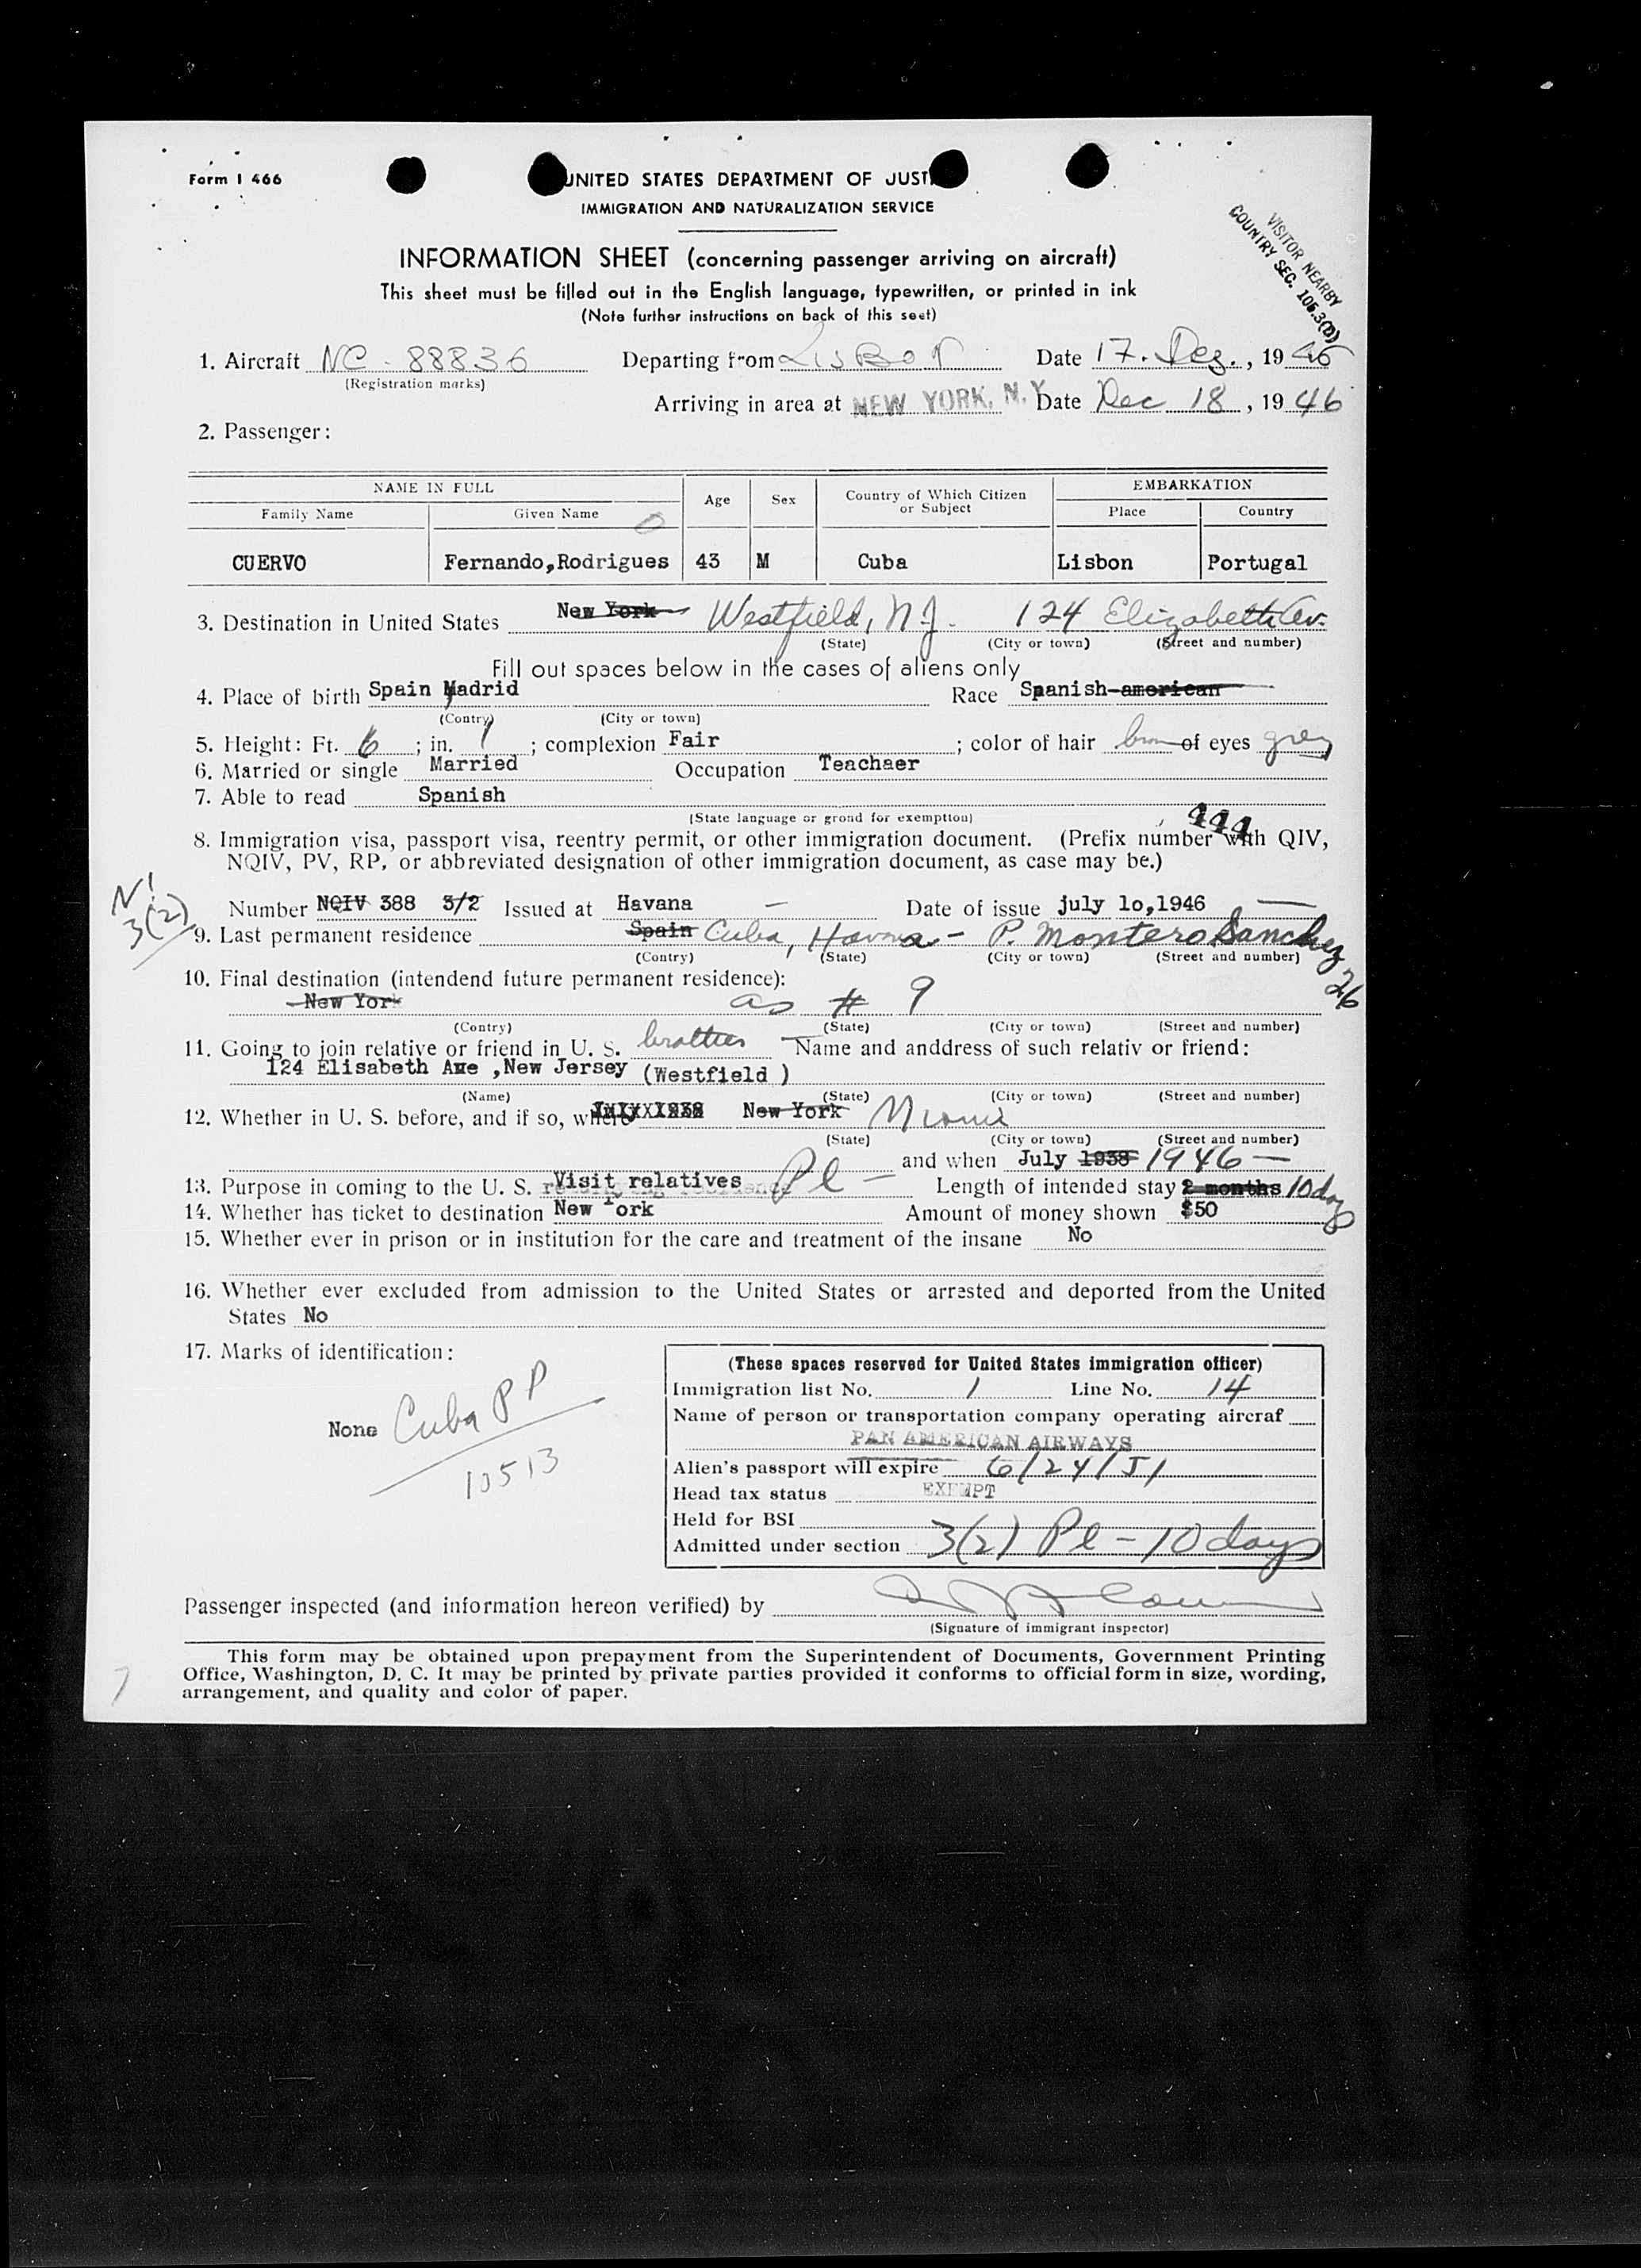 Form I 466
UNITED STATES DEPARTMENT OF JUST
IMMIGRATION AND NATURALIZATION SERVICE
VISITOR NEARBY
COUNTRY SEC. 105.3(D))
INFORMATION SHEET (concerning passenger arriving on aircraft)
This sheet must be filled out in the English language, typewritten, or printed in ink
(Note further instructions on back of this seet)
1. Aircraft NC - 88836 Departing from LisBon Date 17. Dez., 19 46
(Registration marks)
Arriving in area at NEW YORK, N.Y. Date Dec 18, 19 46
2. Passenger:
NAME IN FULL Age Sex Country of Which Citizen or Subject EMBARKATION
Family Name Given Name Place Country
CUERVO Fernando,Rodrigues 43 M Cuba Lisbon Portugal
3. Destination in United States New York Westfield, N.J. 124 Elizabeth Av.
(State) (City or town) (Street and number)
Fill out spaces below in the cases of aliens only
4. Place of birth Spain Madrid Race Spanish-american
(Contry) (City or town)
5. Height: Ft. 6 ; in. 1 ; complexion Fair ; color of hair of eyes grey
6. Married or single Married Occupation Teachaer
7. Able to read Spanish
(State language or grond for exemption)
444
8. Immigration visa, passport visa, reentry permit, or other immigration document. (Prefix number with QIV,
NQIV, PV, RP, or abbreviated designation of other immigration document, as case may be.)
N!
3(2)
Number NQIV 388 3/2 Issued at Havana — Date of issue july lo,1946 —
9. Last permanent residence Spain Cuba, Havana - P. Montero Sanchez 26
(Contry) (State) (City or town) (Street and number)
10. Final destination (intendend future permanent residence):
New York as # 9
(Contry) (State) (City or town) (Street and number)
11. Going to join relative or friend in U. S. brother Name and anddress of such relativ or friend:
124 Elisabeth Axe ,New Jersey (Westfield )
(Name) (State) (City or town) (Street and number)
12. Whether in U. S. before, and if so, where New York Miami
(State) (City or town) (Street and number)
and when July 1938 1946 —
13. Purpose in coming to the U. S. Visit relatives Pl - Length of intended stay 2 months 10 days
14. Whether has ticket to destination New York Amount of money shown $50
15. Whether ever in prison or in institution for the care and treatment of the insane No
16. Whether ever excluded from admission to the United States or arrested and deported from the United
States No
17. Marks of identification:
None Cuba PP
10513
(These spaces reserved for United States immigration officer)
Immigration list No. 1 Line No. 14
Name of person or transportation company operating aircraf
PAN AMERICAN AIRWAYS
Alien's passport will expire 6/24/51
Head tax status EXEMPT
Held for BSI
Admitted under section 3(2) Pl - 10 days
Passenger inspected (and information hereon verified) by
(Signature of immigrant inspector)
This form may be obtained upon prepayment from the Superintendent of Documents, Government Printing
Office, Washington, D. C. It may be printed by private parties provided it conforms to official form in size, wording,
arrangement, and quality and color of paper.
7